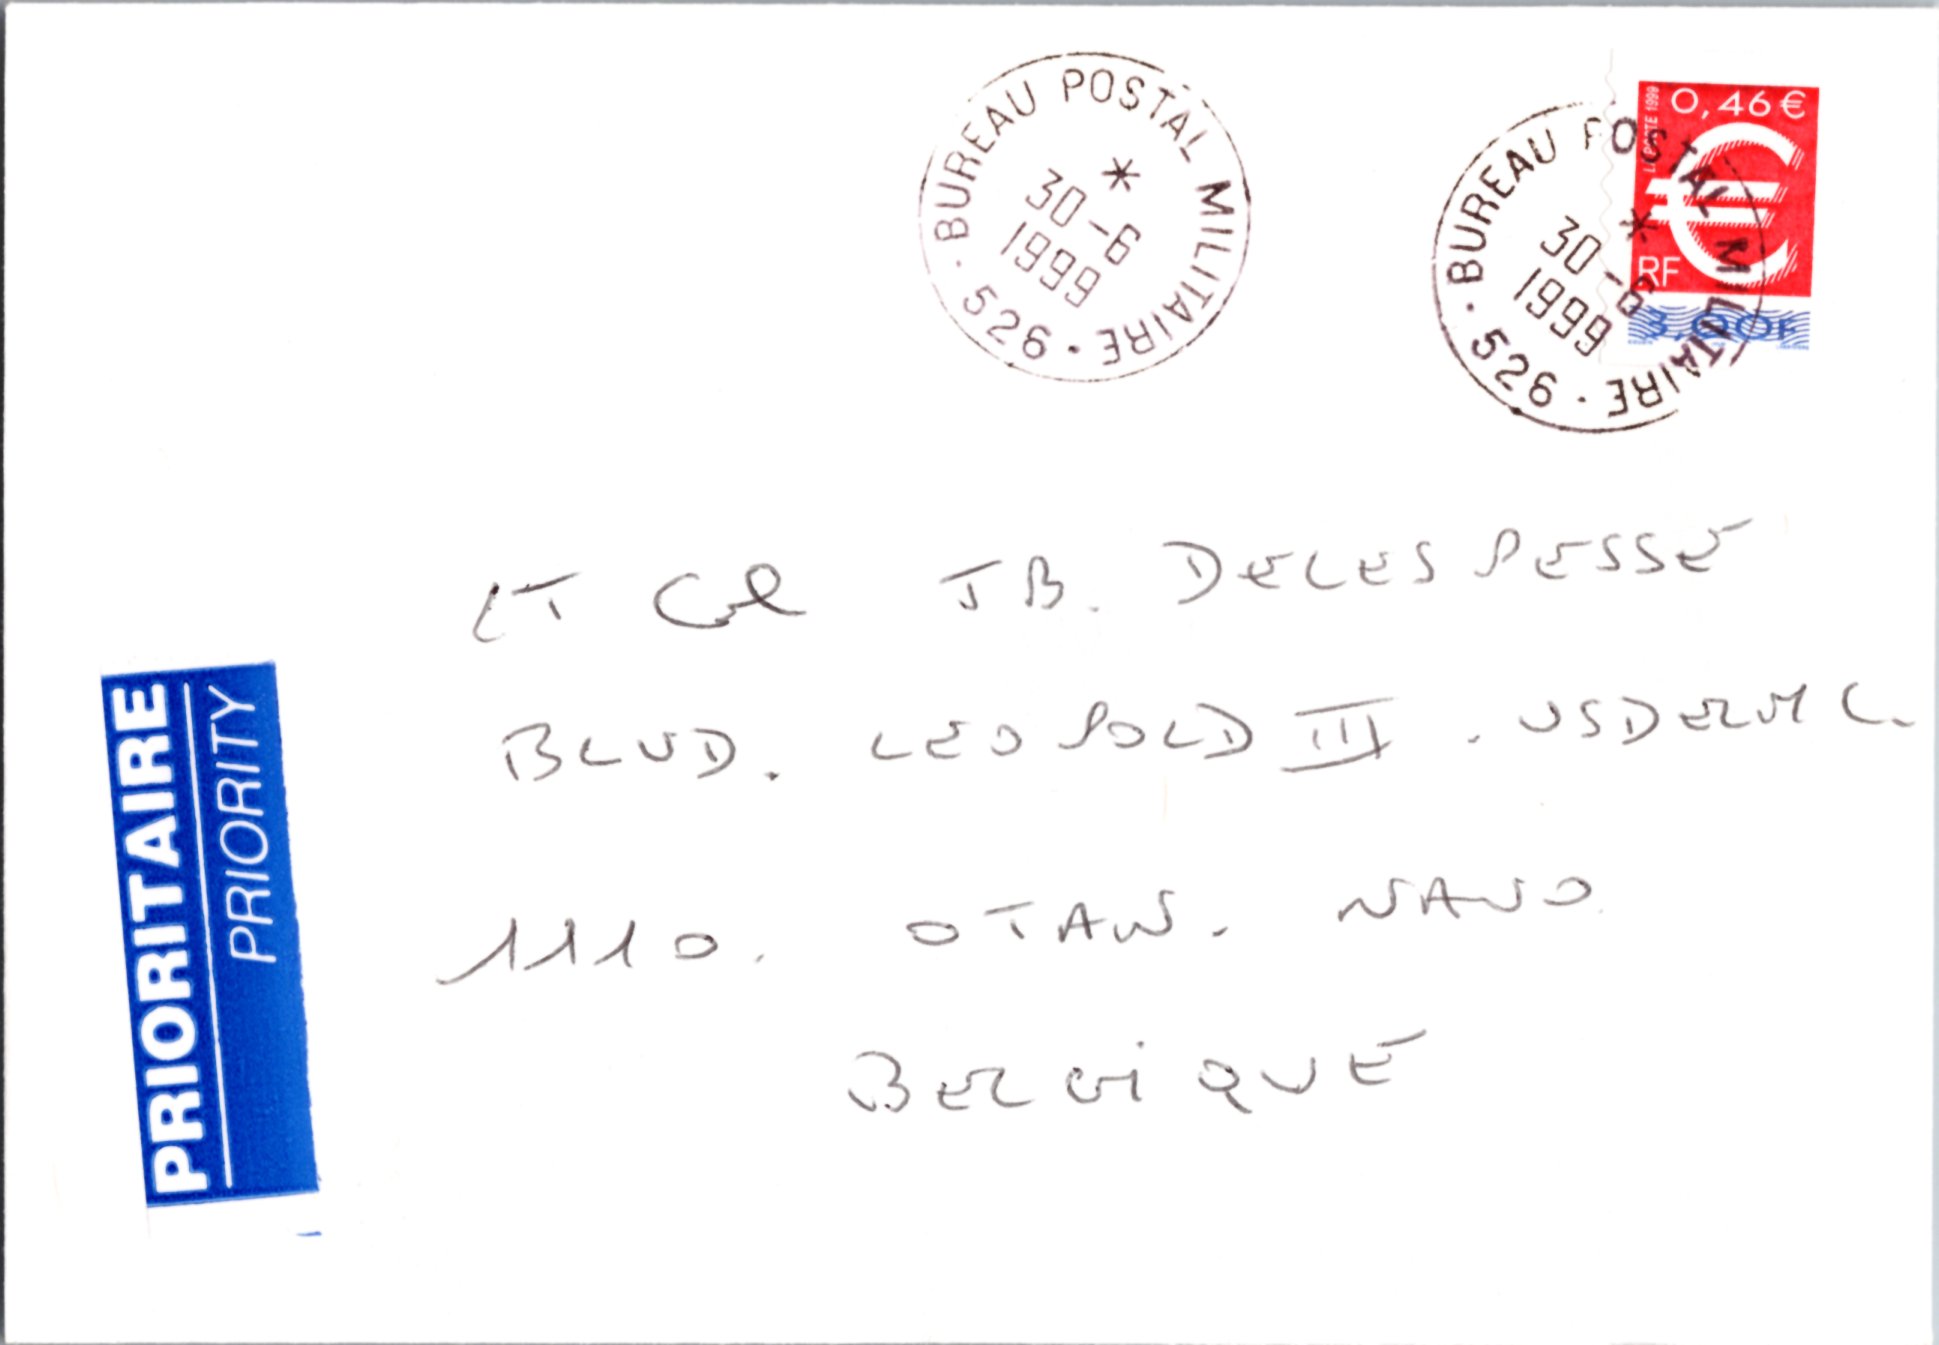 BUREAU POSTAL MILITAIRE
*
30-6
1999
· 526 ·
BUREAU POSTAL MILITAIRE
*
30-6
1999
· 526 ·
0,46 €
LA POSTE 1999
€
RF
3,00F
LT Col JB. DELESPESSE
BLVD. LEOPOLD III. USDELMC.
1110. OTAN. NATO
BELGIQUE
PRIORITAIRE
PRIORITY